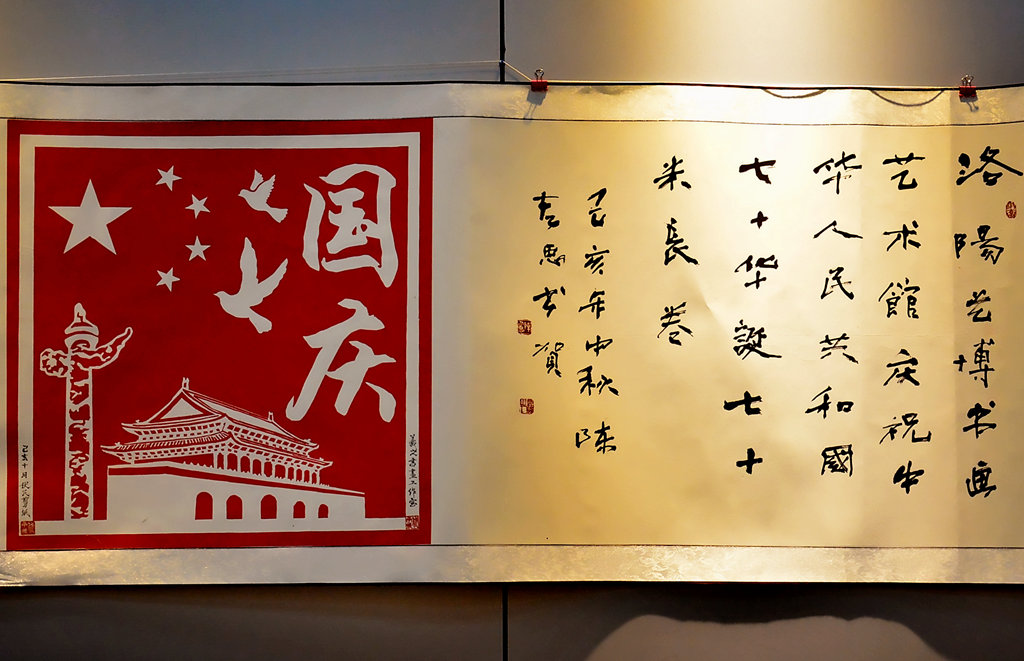 洛陽艺博书画
艺术館庆祝中
华人民共和國
七十华誕七十
米長卷
己亥年中秋陳
书賀
国庆
書畫工作室
己亥十月